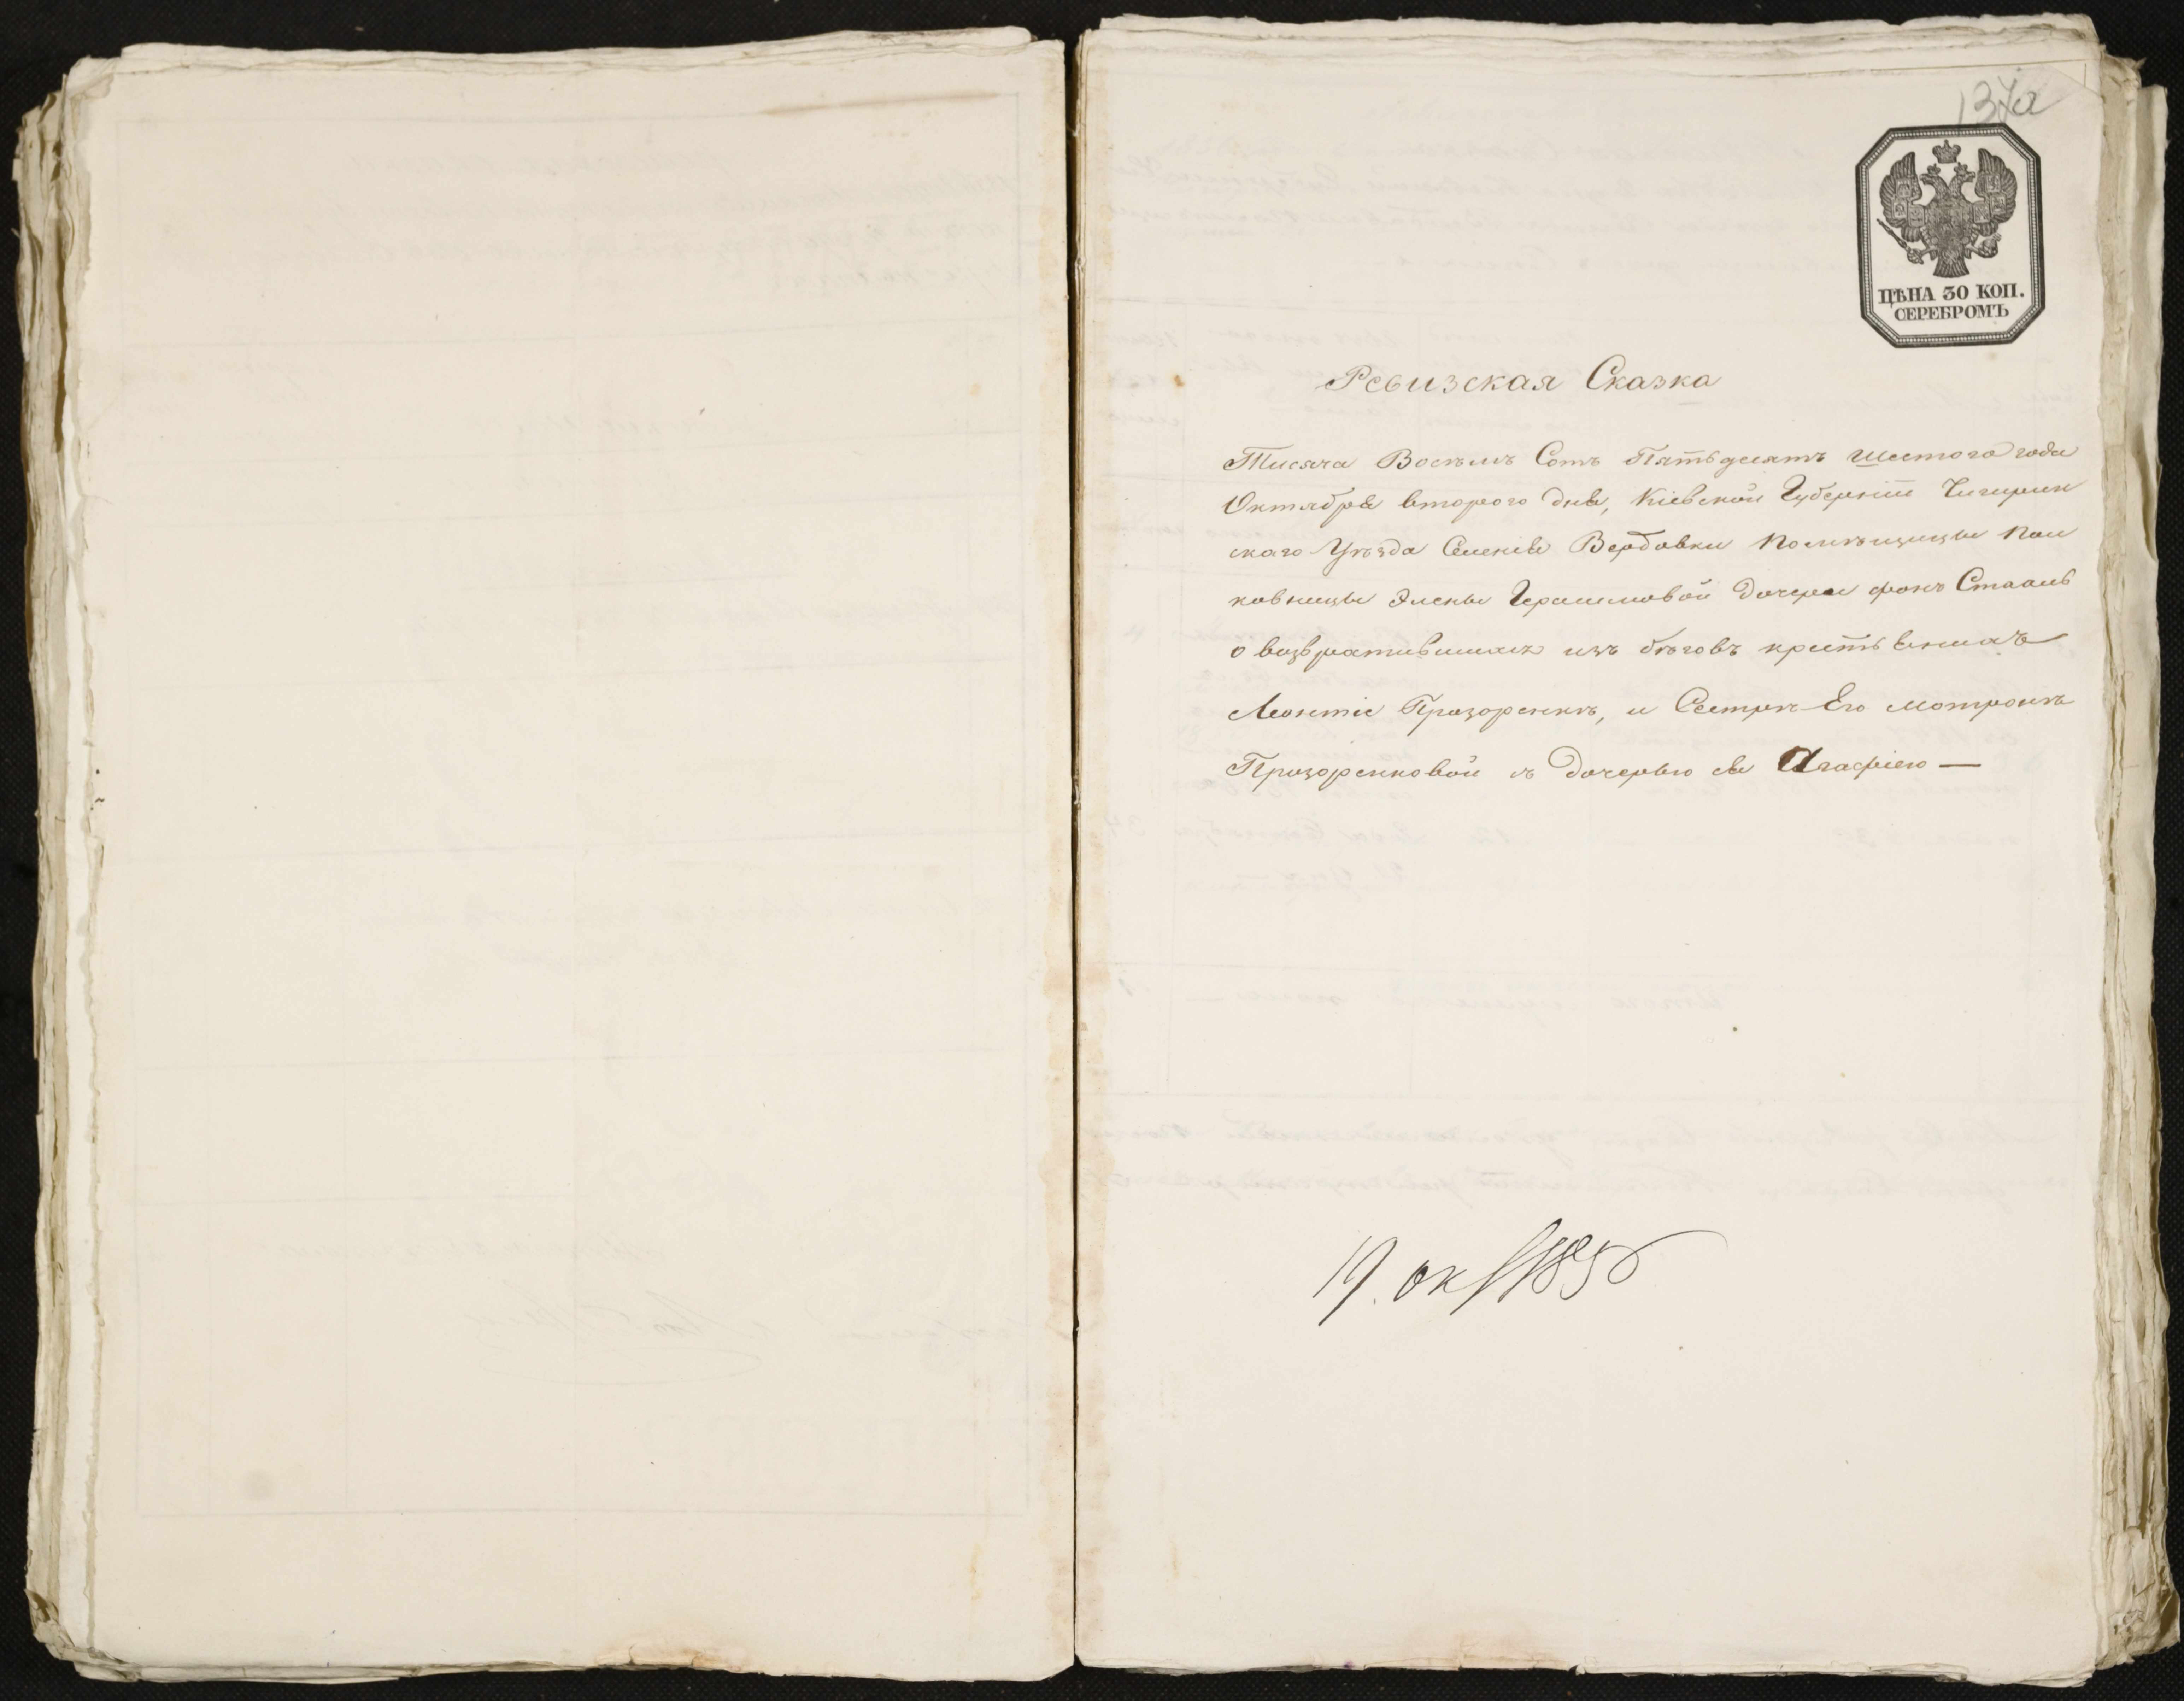 137а
ЦѢНА 30 КОП.
СЕРЕБРОМЪ
Ревизская Сказка
Тисяча Восемъ Сотъ Пятьдесятъ Шестого года
Октября второго дня, Кіевской Губерніи Чигирин
скаго Уѣзда Селенія Вербовки Помѣщицы Пол
ковницы Элены Герасимовой дочери фонъ Стааль
о возвратившихся изъ бѣговъ крестьянахъ
Леонтіе Прозоренкѣ, и Сестрѣ Его Мотронѣ
Прозоренковой съ дочерью ея Агафіею —
19. окт 1856